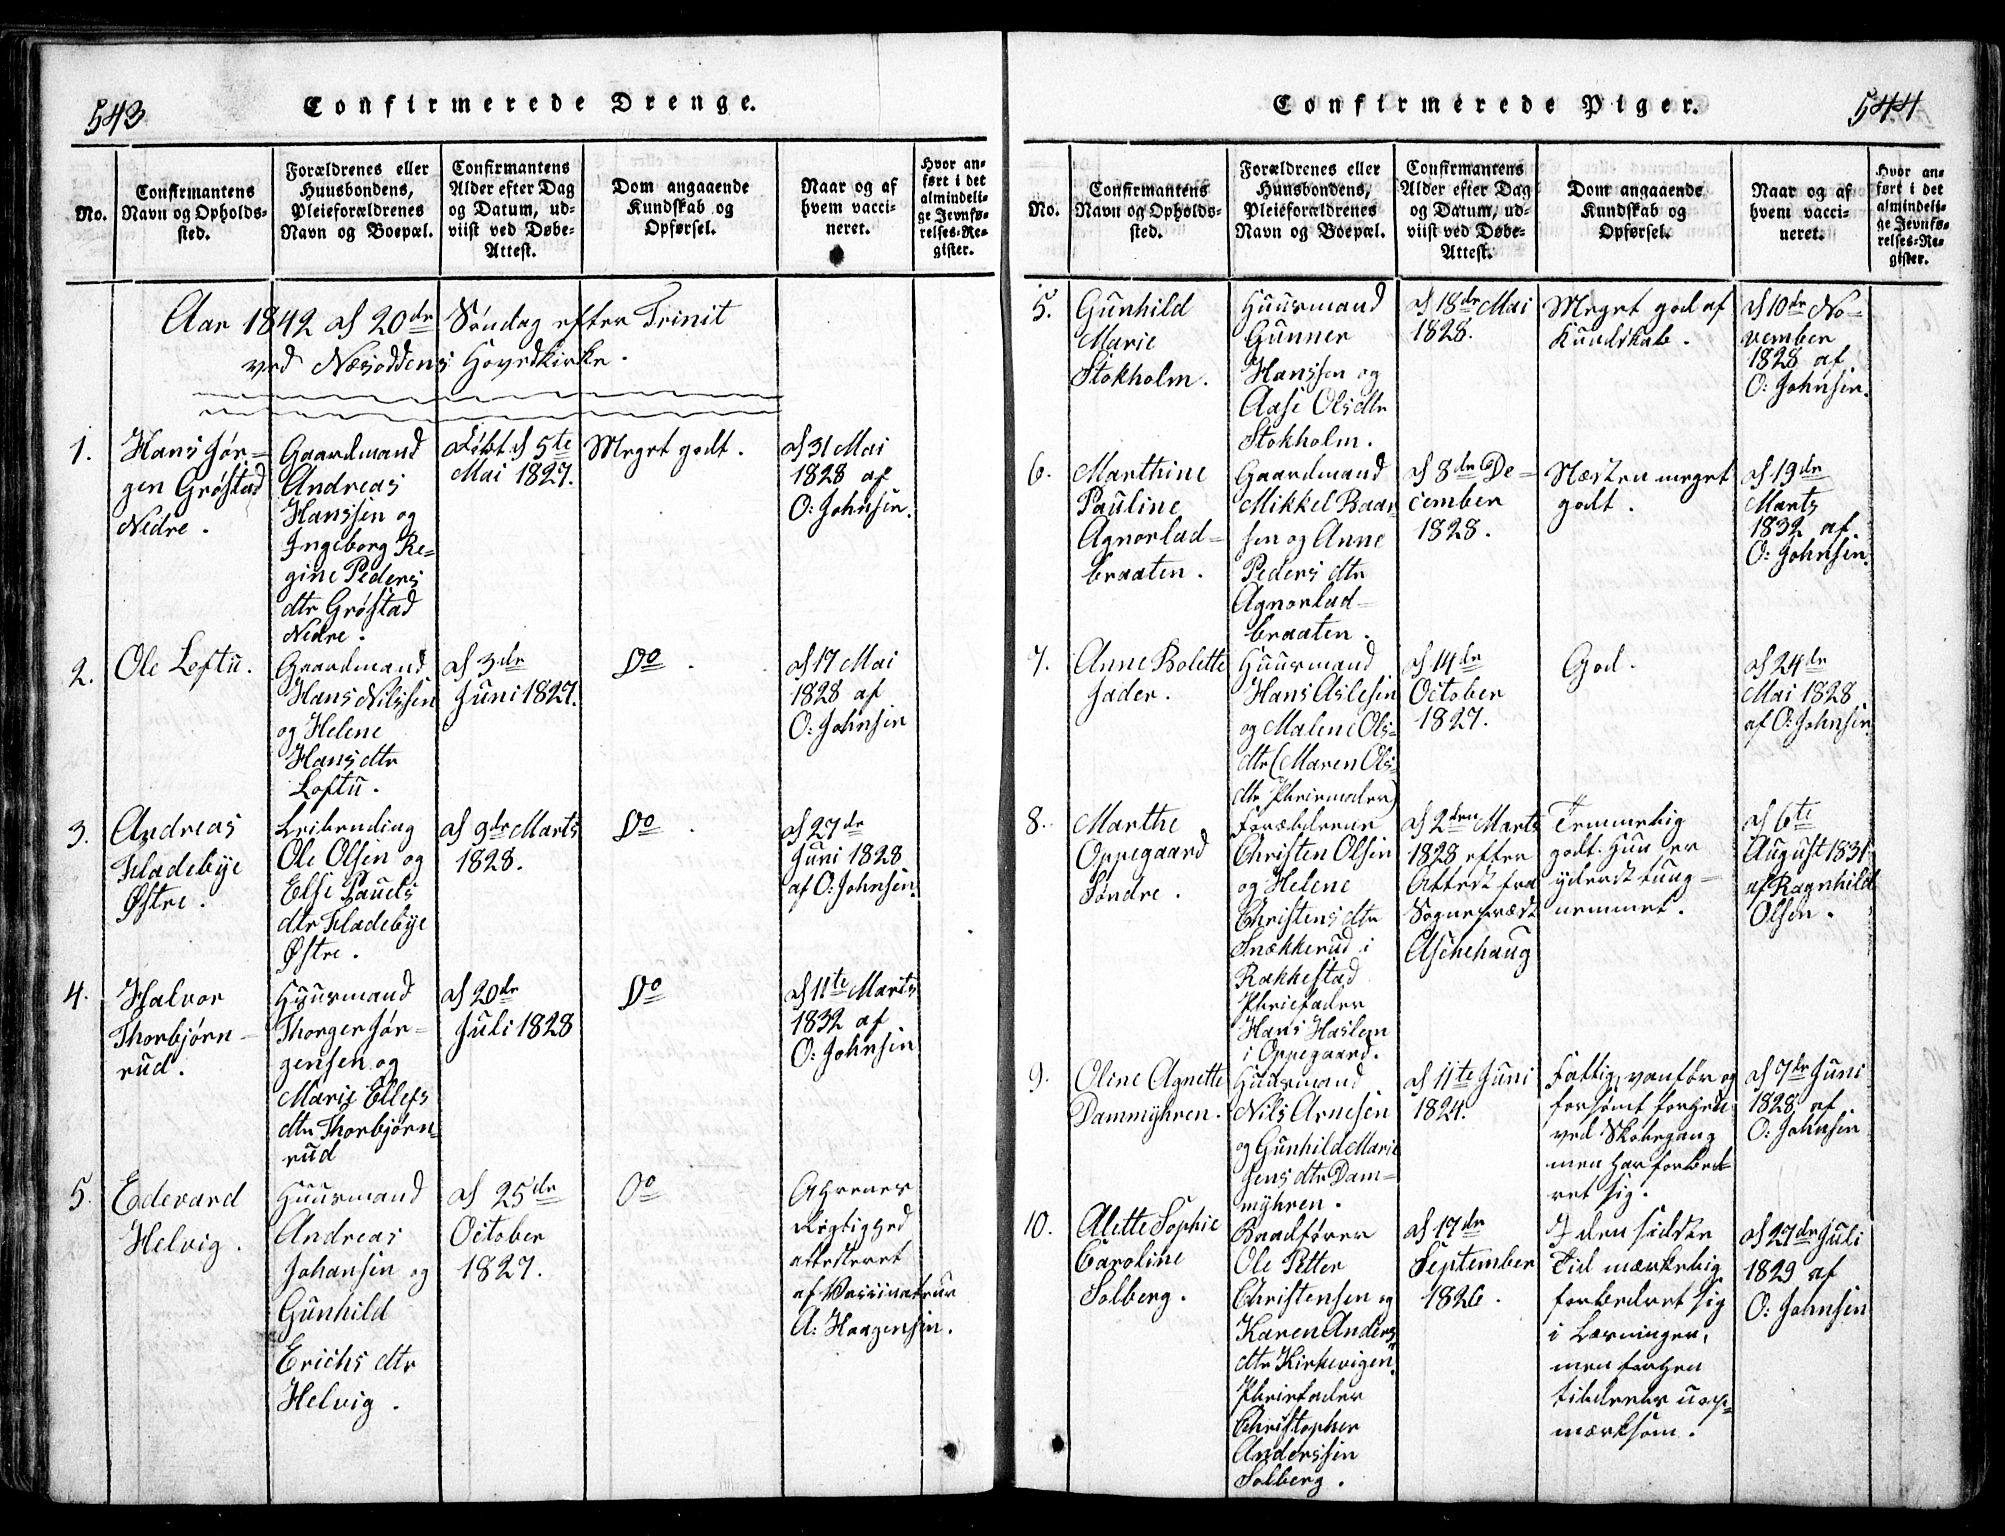 543
Confirmerede Drenge.
No.
Confirmantens
Navn og Opholds-
sted.
Forældrenes eller
Huusbondens,
Pleieforældrenes
Navn og Boepæl.
Confirmantens
Alder efter Dag
og Datum, ud-
viist ved Døbe-
Attest.
Dom angaaende
Kundskab og
Opførsel.
Naar og af
hvem vacci-
neret.
Hvor an-
ført i det
almindeli-
ge Jevnfø-
relses-Re-
gister.
Aar 1842 d 20de Søndag efter Trinit
ved Næsoddens Hovedkirke.
1.
Hans Jør-
gen Grøstad
Nedre.
Gaardmand
Andreas
Hanssen og
Ingeborg Re-
gine Peders
dtr Grøstad
Nedre.
Født d 5te
Mai 1827.
Meget godt.
d 31 Mai
1828 af
O: Johnsen.
2.
Ole Loftu.
Gaardmand
Hans Nilssen
og Helene
Hans dtr
Loftu.
d 3de
Juni 1827.
Do.
d 17 Mai
1828 af
O: Johnsen
3.
Andreas
Fladebye
Østre.
Leilending
Ole Olsen og
Else Pauels
dtr Fladebye
Østre.
d 9de Marts
1828.
Do.
d 27de
Juni 1828
af O: Johnsen.
4.
Halvor
Thorbjørn-
rud.
Huusmand
Thorger Jør-
gensen og
Marie Ellefs
dtr Thorbjørn-
rud
d 20de
Juli 1828
Do
d 11te Marts
1832 af
O: Johnsen
5.
Edevard
Helvig.
Huusmand
Andreas
Johansen og
Gunhild
Erichs dtr
Helvig.
d 25de
October
1827.
Do
Ahrenes
Rigtighed
attesteret
af Vaccinateur
A: Haagensen.
544
Confirmerede Piger.
No.
Confirmantens
Navn og Opholds-
sted.
Forældrenes eller
Huusbondens,
Pleieforældrenes
Navn og Boepæl.
Confirmantens
Alder efter Dag
og Datum, ud-
viist ved Døbe-
Attest.
Dom angaaende
Kundskab og
Opførsel.
Naar og af
hvem vacci-
neret.
Hvor an-
ført i det
almindeli-
ge Jevnfø-
relses-Re-
gister.
5.
Gunhild
Marie
Stokholm.
Huusmand
Gunner
Hanssen og
Aase Ols dtr
Stokholm.
d 18de Mai
1828.
Meget god af
Kundskab.
d 10de No-
vember
1828 af
O: Johnsen.
6.
Marthine
Pauline
Agnorlad-
braaten.
Gaardmand
Mikkel Baar
sen og Anne
Peders dtr
Agnorlad-
braaten.
d 8de De-
cember
1828.
Næsten meget
godt.
d 19de
Marts
1832 af
O: Johnsen.
7.
Anne Bolette
Jader.
Huusmand
Hans Aslesen
og Malene Ols-
dtr (Maren Ols-
dtr Pleiemoder)
d 14de
October
1827.
God.
d 24de
Mai 1828
af O: Johnsen.
8.
Marthe
Oppegaard
Søndre.
Forældrene
Christen Olsen
og Helene
Christens dtr
Snækkerud i
Rakkestad
Pleiefader
Hans Haslem
i Oppegaard.
d 2den Marts
1828 efter
Attest fra
Sognepræst
Aschehoug
Temmelig
godt. Hun er
yderst tung-
nemmet.
d 6te
August 1831
af Ragnhild
Olsen.
9.
Oline Agnette
Dammyhren.
Huusmand
Nils Arnesen
og Gunhild Marie
Jens dtr Dam-
myhren.
d 11te Juni
1824.
Fattig, vanfør og
forsømt forhen
ved Skolegang
men har forbed-
ret sig.
d 7de Juni
1828 af
O: Johnsen
10.
Alette Sophie
Caroline
Solberg.
Baadfører
Ole Petter
Christensen og
Karen Anders
dtr Kirkevigen.
Pleiefader
Christopher
Anderssen
Solberg.
d 17de
September
1826.
I den sidste
Tid mærkelig
forbedret sig
i Læsningen,
men forhen
tildeels uop-
mærksom.
d 27de Juli
1829 af
O: Johnsen